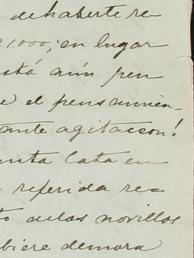 dehaberte re
1.000; en lugar
está aún pen
e el pensamien-
ante agitacion!
unta Cata en
referida re-
to delos novillos
biere demora